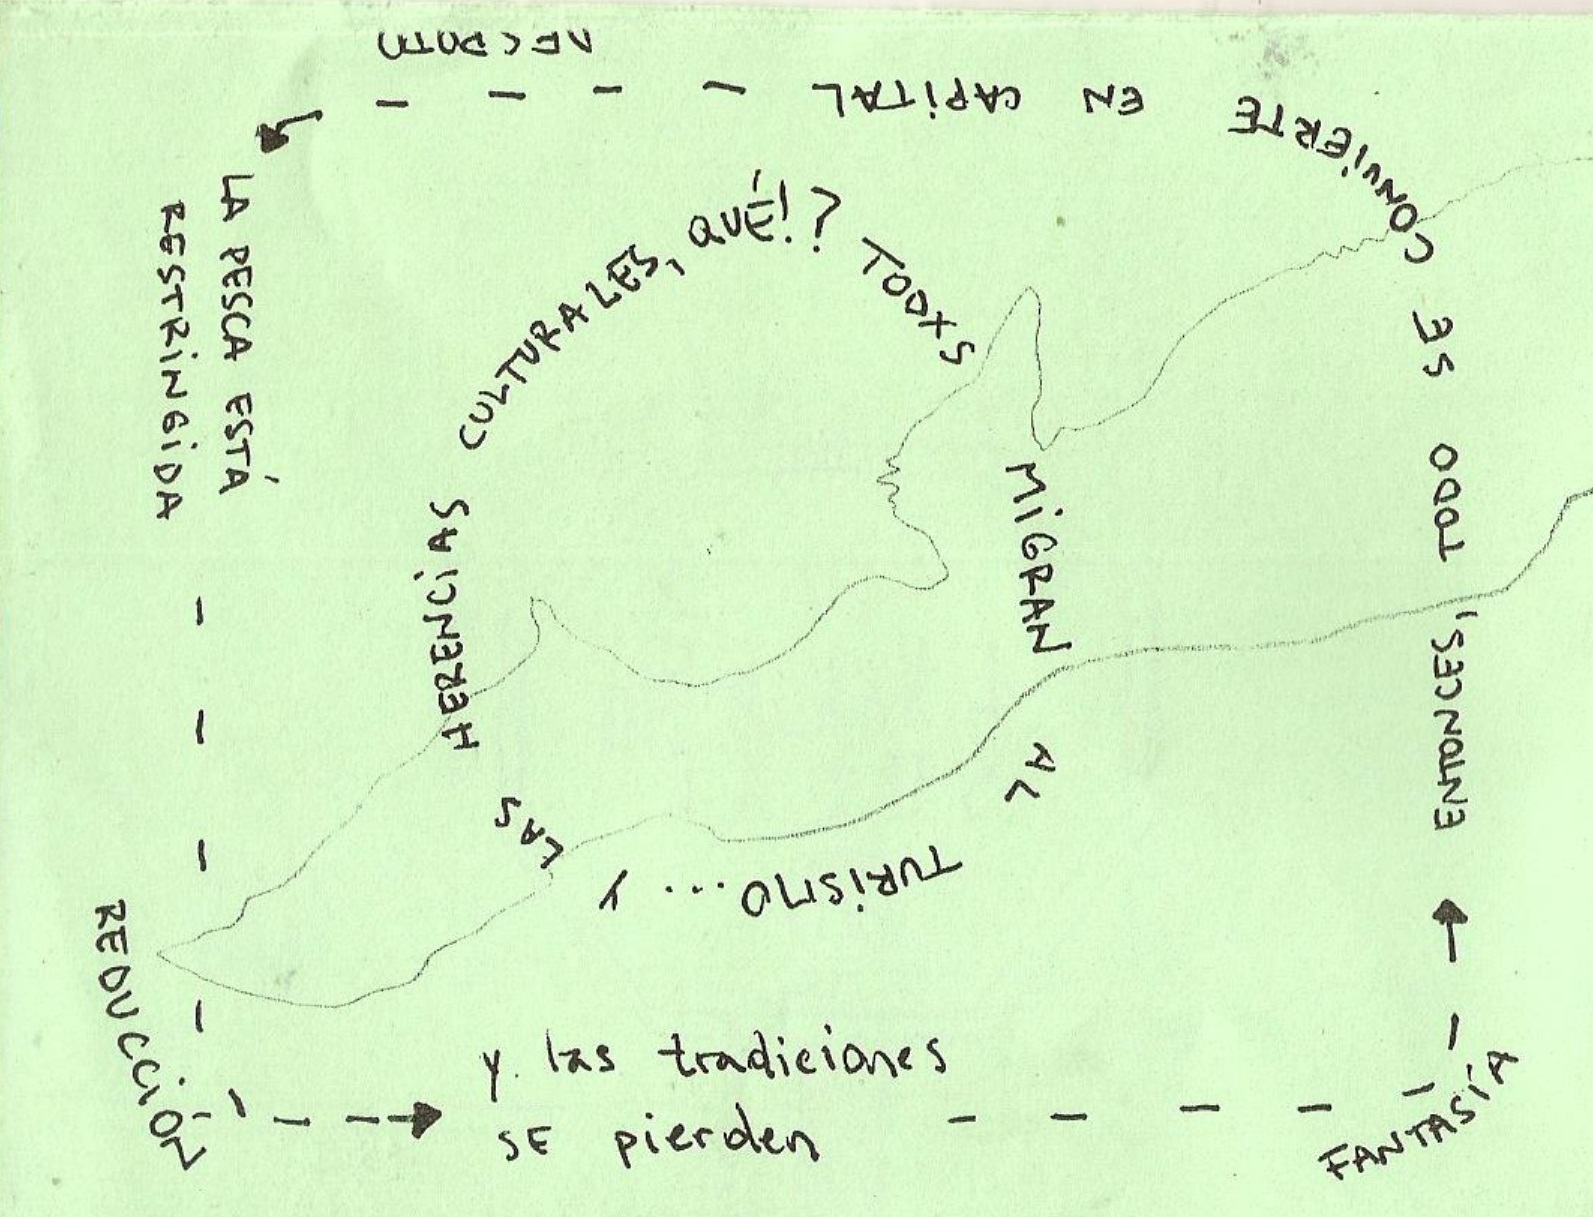 LA PESCA ESTÁ
RESTRINGIDA
REDUCCIÓN
y las tradiciones
SE pierden
FANTASÍA
ENTONCES, TODO SE CONVIERTE EN CAPITAL
LAS HERENCIAS CULTURALES, QUÉ!? TODXS MIGRAN AL TURISMO... Y